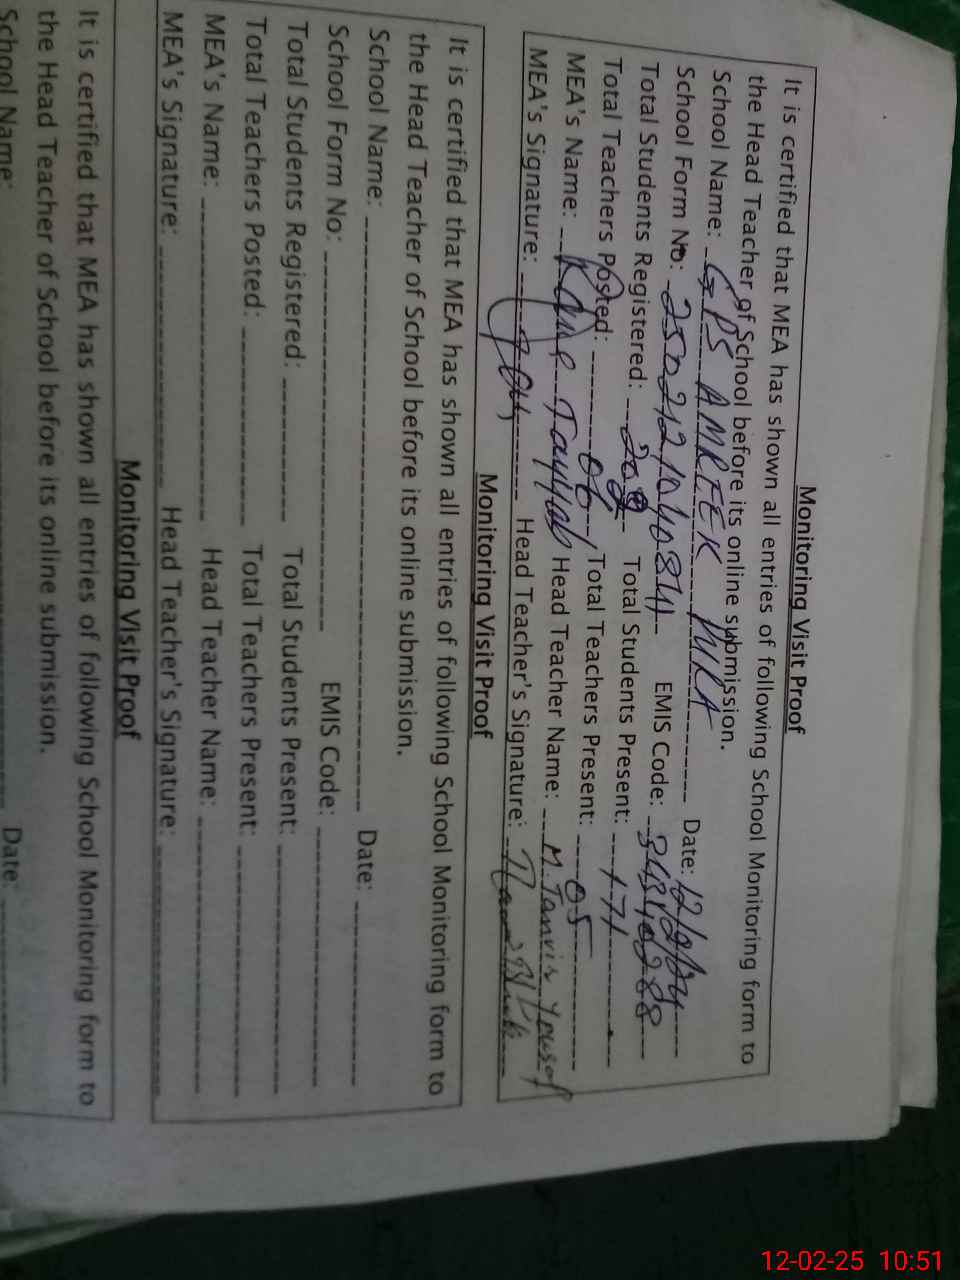 Monitoring Visit Proof
It is certified that MEA has shown all entries of following School Monitoring form to
the Head Teacher of School before its online submission.
School Name: GPS AMREEK Date: 12/2/
School Form No: EMIS Code:
Total Students Registered: Total Students Present: 171
Total Teachers Posted: 06 Total Teachers Present: 05
MEA's Name: Tayyab Head Teacher Name: M. Tanvir Yousof
MEA's Signature: Head Teacher's Signature:
Monitoring Visit Proof
It is certified that MEA has shown all entries of following School Monitoring form to
the Head Teacher of School before its online submission.
School Name: Date:
School Form No: EMIS Code:
Total Students Registered: Total Students Present:
Total Teachers Posted: Total Teachers Present:
MEA's Name: Head Teacher Name:
MEA's Signature: Head Teacher's Signature:
Monitoring Visit Proof
It is certified that MEA has shown all entries of following School Monitoring form to
the Head Teacher of School before its online submission.
School Name: Date:
12-02-25 10:51